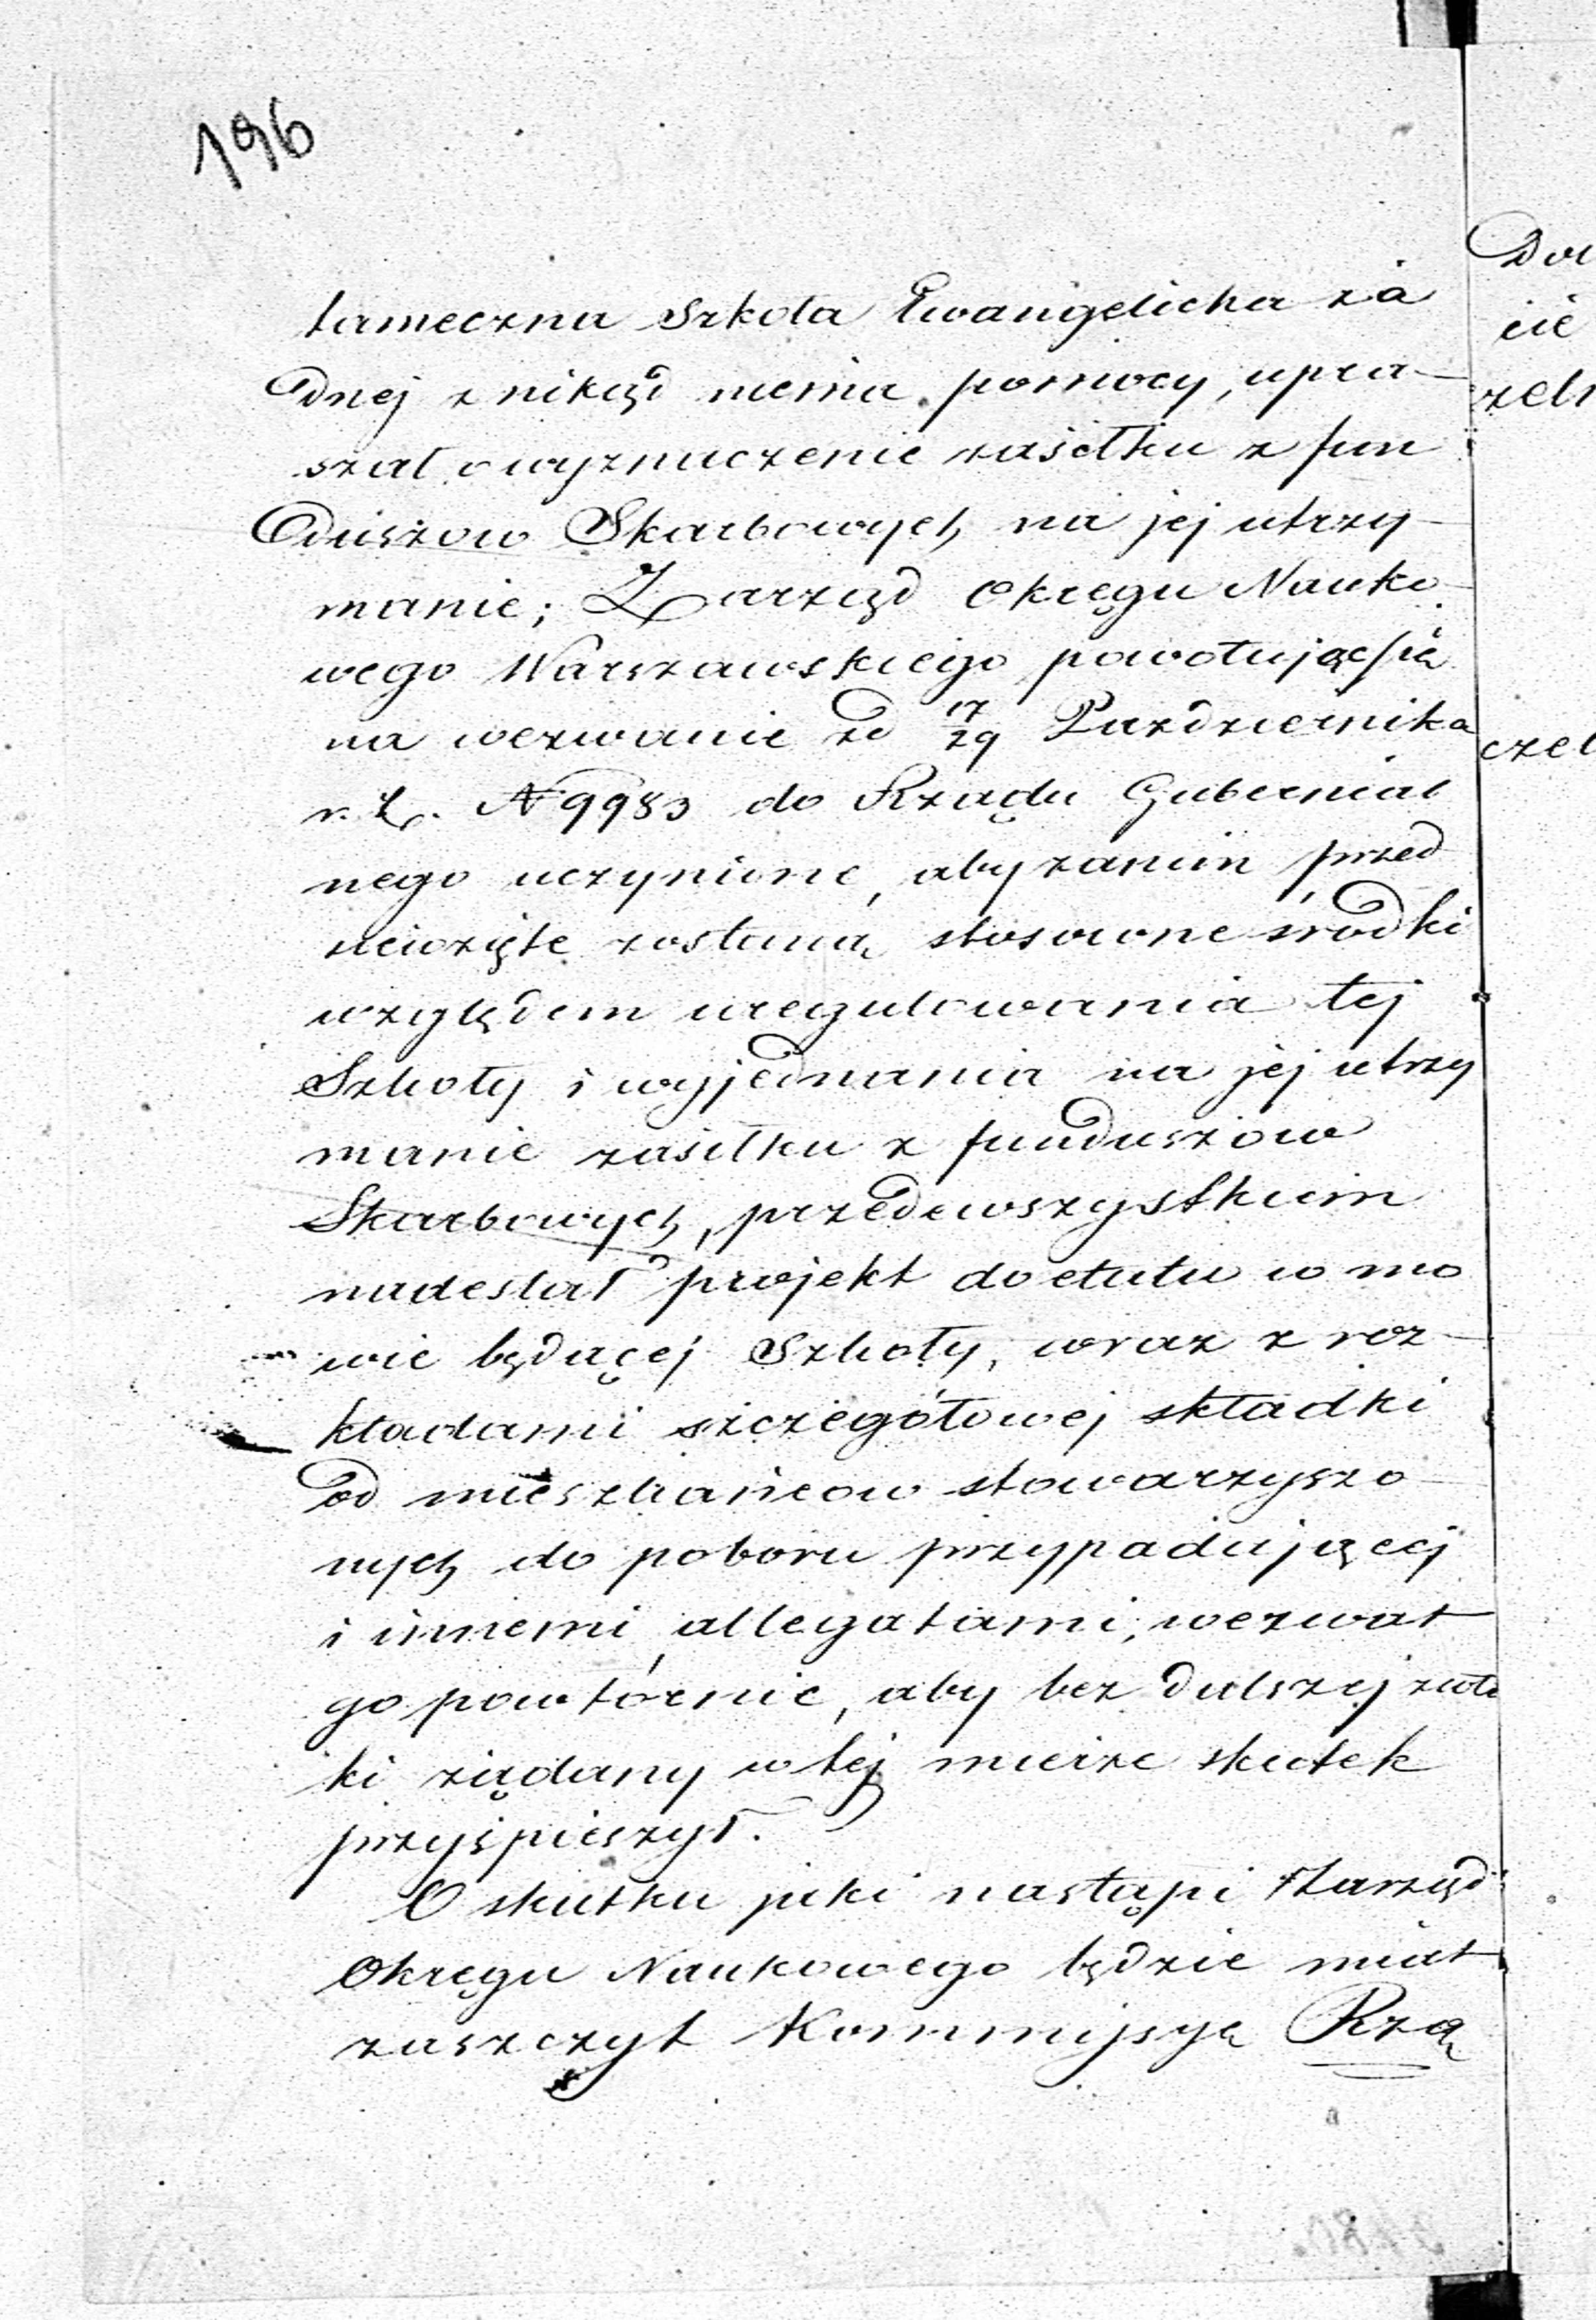 196
tameczna Szkoła Ewangelicka ża
dnej znikąd niema pomocy, upra-
szał o wyznaczenie zasiłku z fun
duszow Skarbowych na jej utrzy-
manie; Zarząd Okręgu Nauko-
wego Warszawskiego powołując się
na wezwanie zd 17/29 Października
r. z. N 9983 do Rządu Gubernial
nego uczynione, aby zanim przed
sięwzięte zostaną stosowne środki
względem uregulowania tej
Szkoły i wyjednania na jej utrzy
manie zasiłku z funduszow
Skarbowych, przedewszystkiem
nadesłał projekt do etatu w mo
wie będącej Szkoły, wraz z roz-
kładami szczegółowej składki
od mieszkańcow stowarzyszo-
nych do poboru przypadającej
i innemi allegatami, wezwał
go powtórnie, aby bez dalszej zwło
ki żądany w tej mierze skutek
przyśpieszył.
O skutku jaki nastąpi Zarząd
Okręgu Naukowego będzie miał
zaszczyt Kommissyą Rzą